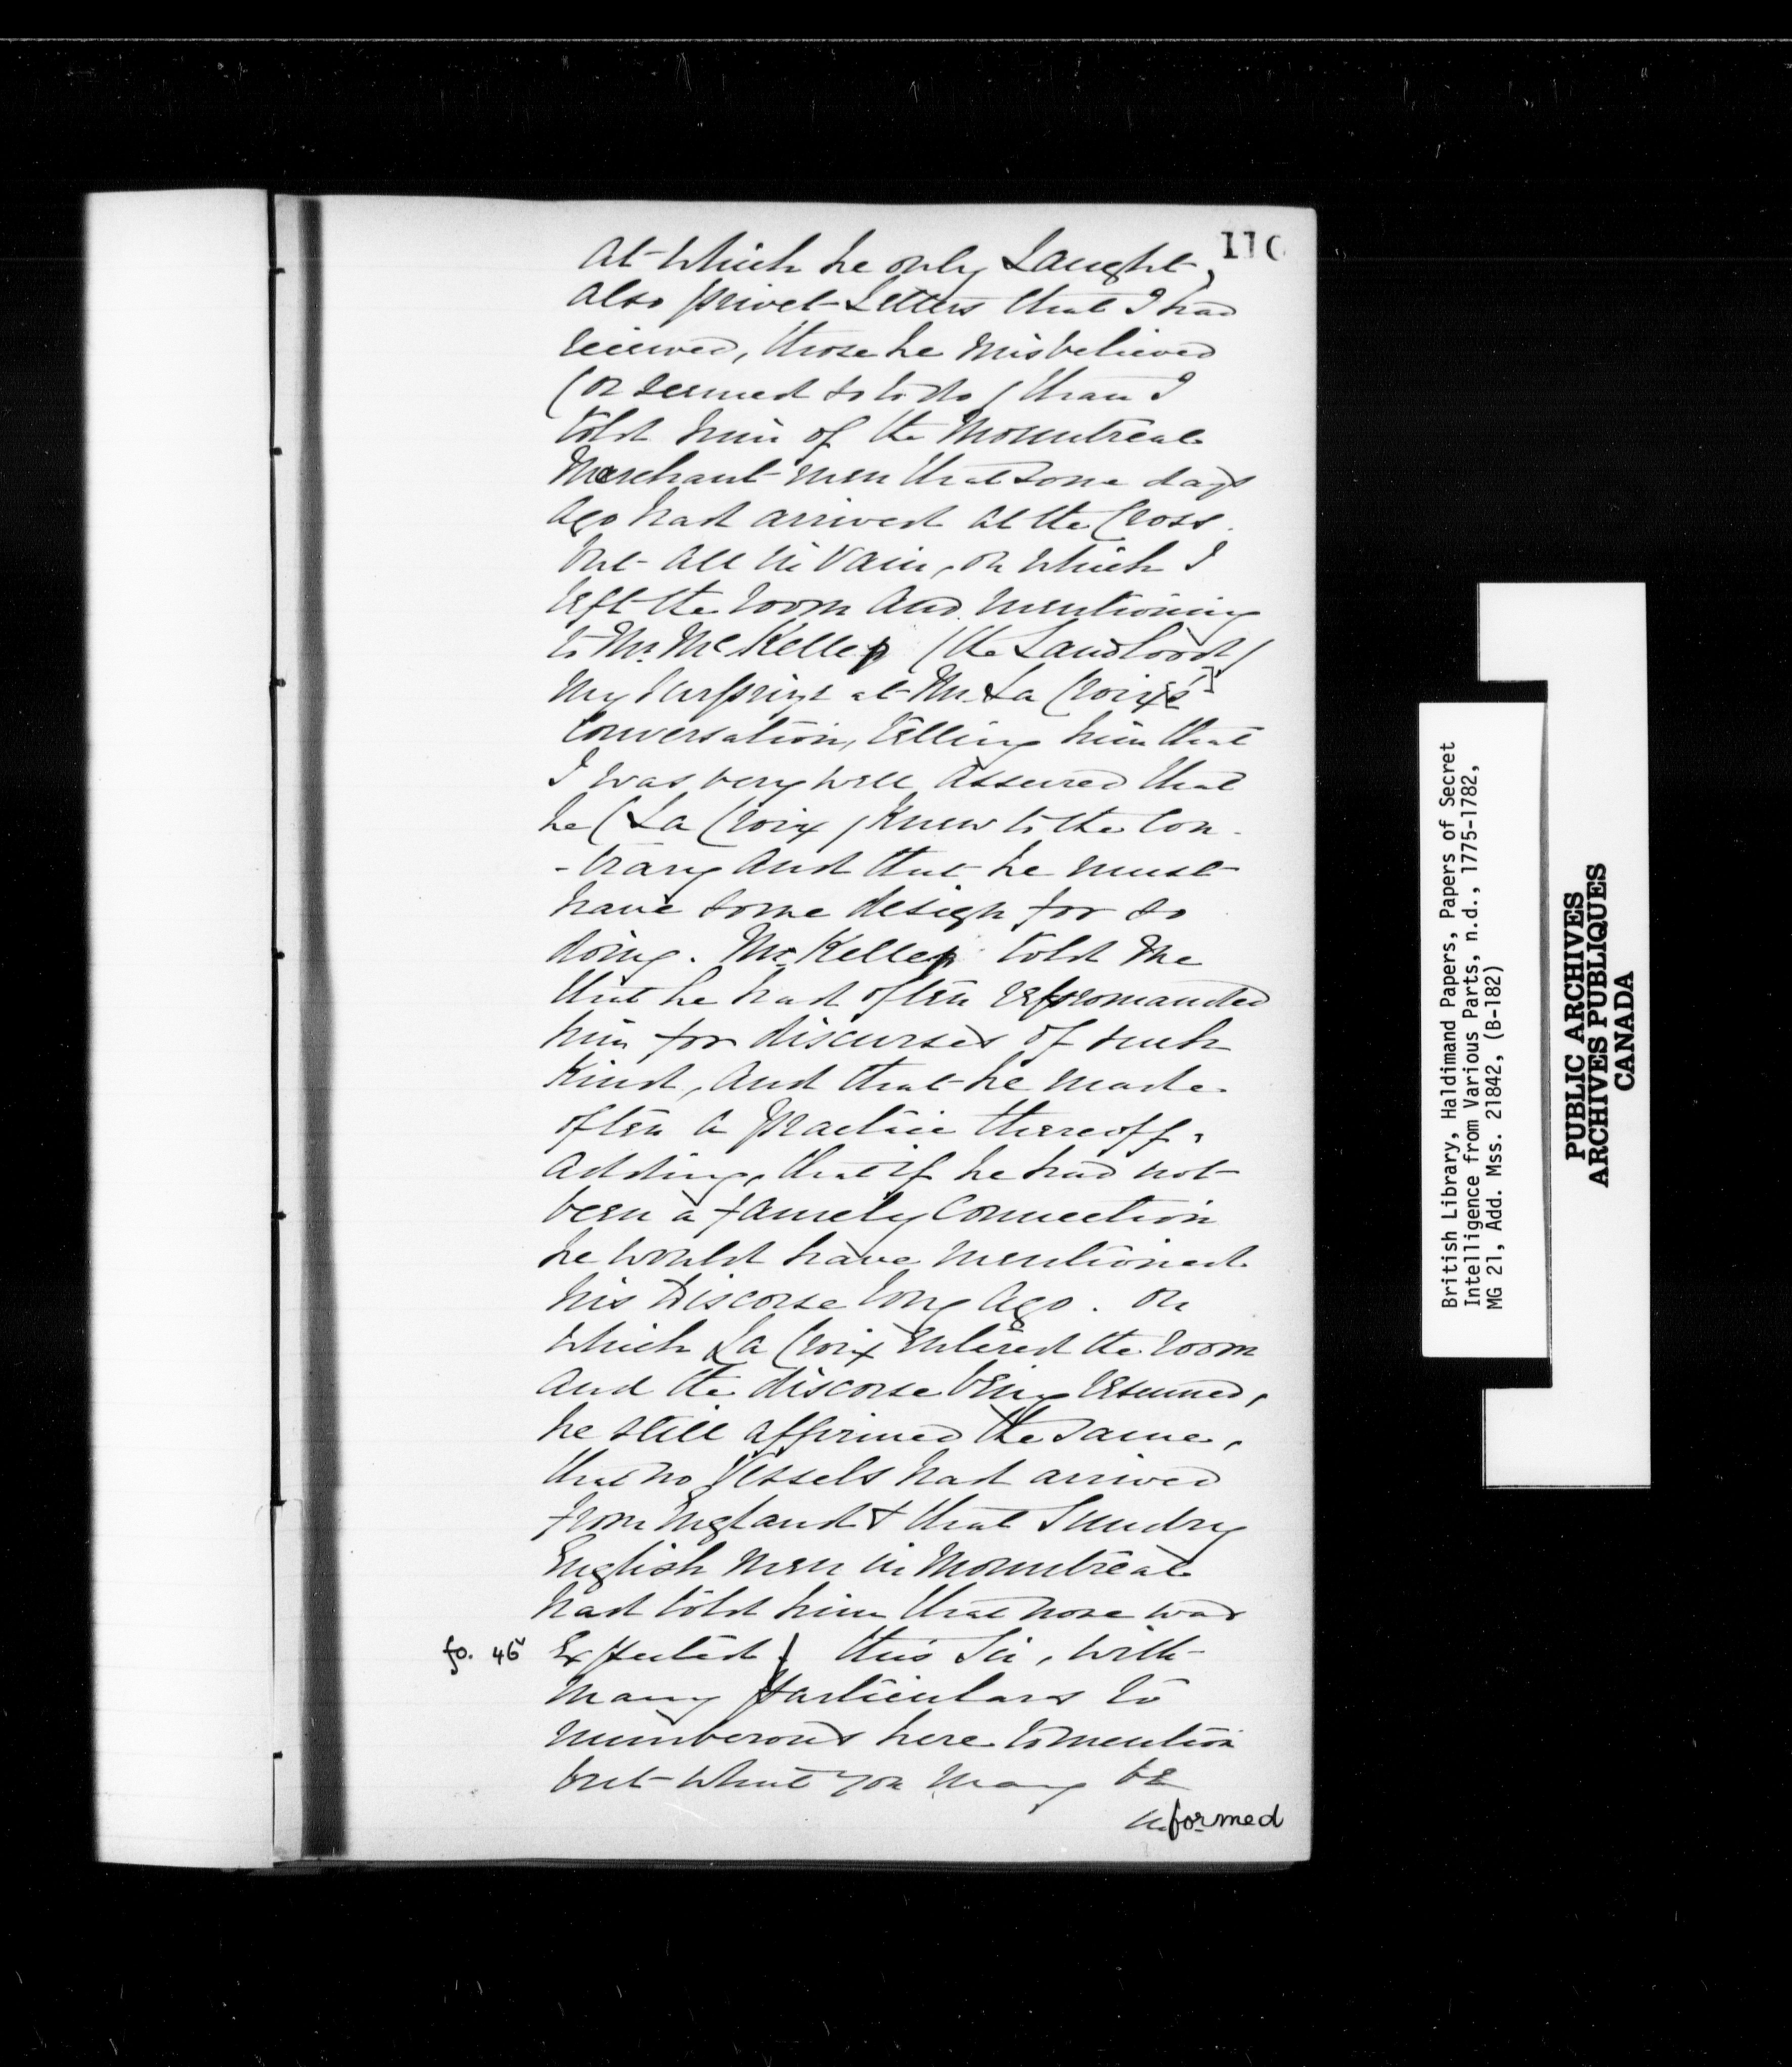 110
At which he only Laught,
also privet Letters that I had
recieved, those he misbelieved
(or seemed so to do) than I
told him of the Mountreale
Merchant men that some days
ago had arrived at the Cross.
but all in Vain, on which I
left the room and mentioning
to Mr. McKeller (the Landlord)
my surprise at Mr. La Croix's
Conversation, telling him that
I was very well assured that
he (La Croix) knew to the con-
-trary and that he must
have some design for so
doing. Mr. Keller told me
that he had often repromanded
him for discurses of such
Kind, and that he made
often a practice thereoff,
adding, that if he had not
been a famely Connection
he would have mentioned
his Discorse long ago. On
which La Croix entered the room
and the discorse being resumed,
he still affirmed the same,
that no Vessels had arrived
from England & that Sundry
English men in Mountreale
had told him that none was
fo. 46 Expected / this Sir, with
many particulars to
numberous here to mention
but what you may be
informed
British Library, Haldimand Papers, Papers of Secret
Intelligence from Various Parts, n.d., 1775-1782,
MG 21, Add. Mss. 21842, (B-182)
PUBLIC ARCHIVES
ARCHIVES PUBLIQUES
CANADA